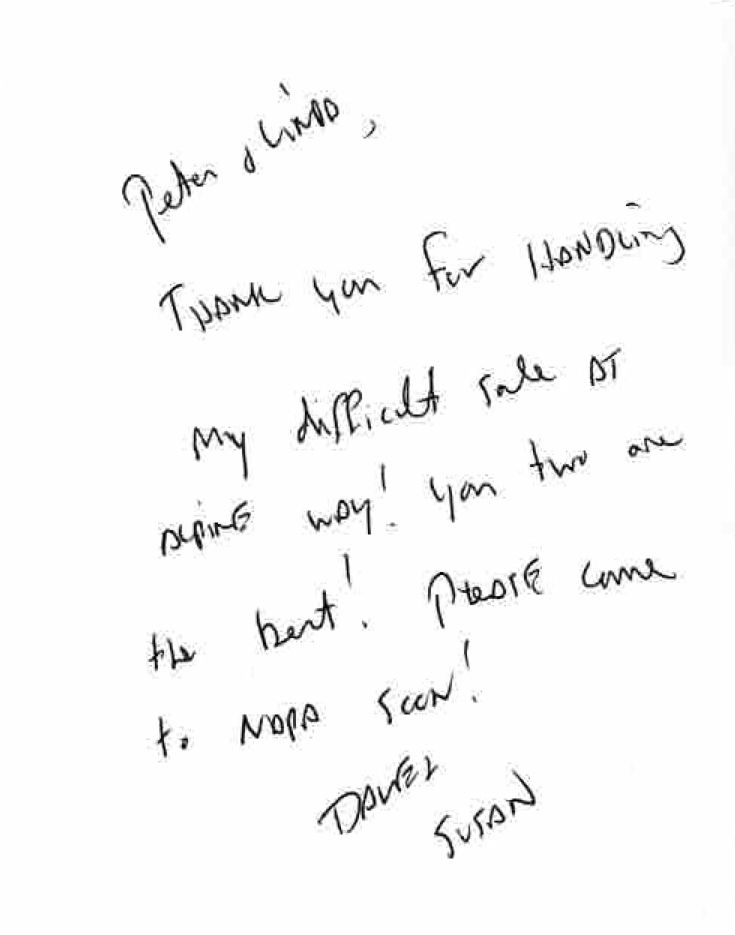 Peter & Linda,
Thank you for Handling
My difficult sale at
Alpine Way! You two are
the best! Please come
to Napa soon!
Daniel
Susan